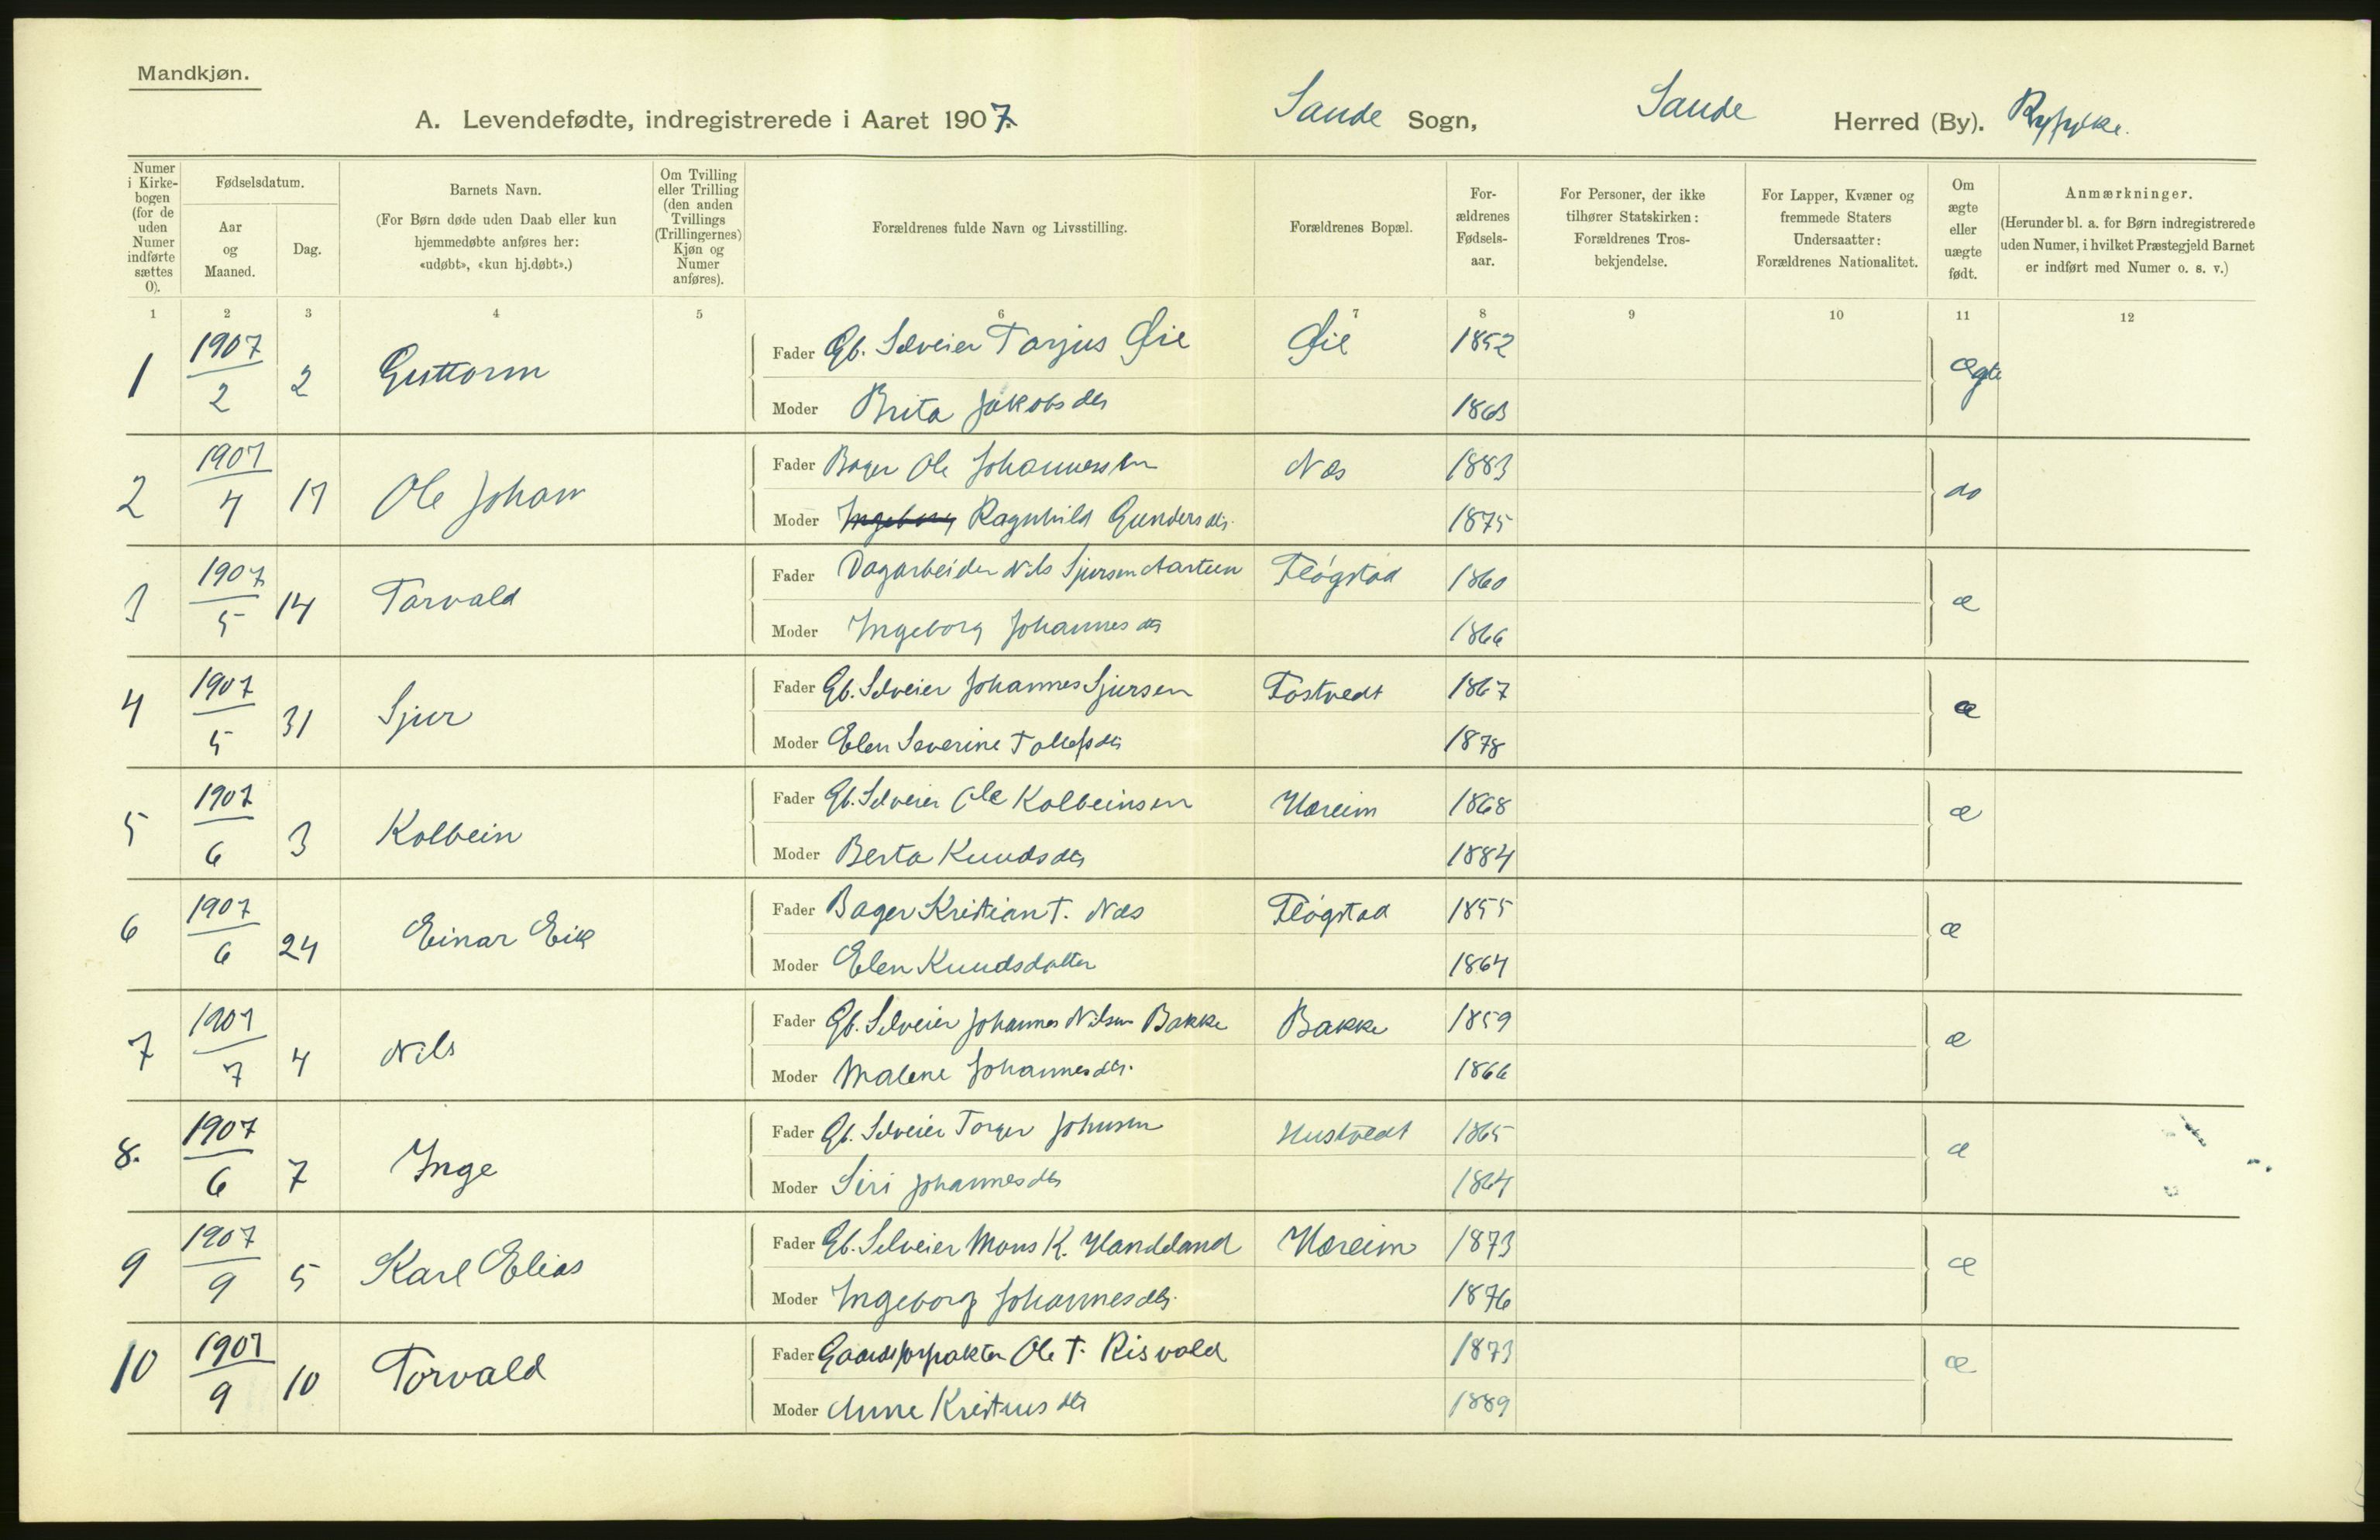 Mandkjøn.
A. Levendefødte, indregistrerede i Aaret 1907. Sande Sogn, Sande Herred (By). Ryfylke.
Numer i Kirkebogen (for de uden Numer indførte sættes 0).
Fødselsdatum.
Aar og Maaned.
Dag.
Barnets Navn.
(For Børn døde uden Daab eller kun hjemmedøbte anføres her: «udøbt», «kun hj.døbt».)
Om Tvilling eller Trilling (den anden Tvillings (Trillingernes) Kjøn og Numer anføres).
Forældrenes fulde Navn og Livsstilling.
Forældrenes Bopæl.
Forældrenes Fødselsaar.
For Personer, der ikke tilhører Statskirken: Forældrenes Trosbekjendelse.
For Lapper, Kvæner og fremmede Staters Undersaatter: Forældrenes Nationalitet.
Om ægte eller uægte født.
Anmærkninger.
(Herunder bl. a. for Børn indregistrerede uden Numer, i hvilket Præstegjeld Barnet er indført med Numer o. s. v.)
1 2 3 4 5 6 7 8 9 10 11 12
1 1907/2 2 Guttorm Fader Gb. Selveier Tarjus Øie Øie 1852 Ægte
Moder Brita Jakobsdtr 1863
2 1907/4 17 Ole Johan Fader Bager Ole Johannessen Næs 1883 do
Moder Ingeborg Ragnhild Gundersdtr. 1875
3 1907/5 14 Torvald Fader Dagarbeider Nils Sjursen Fløgstad 1860 æ
Moder Ingeborg Johannesdtr 1866
4 1907/5 31 Sjur Fader Gb. Selveier Johannes Sjursen Tostvedt 1867 æ
Moder Elen Severine Tollefsdtr 1878
5 1907/6 3 Kolbein Fader Gb. Selveier Ole Kolbeinsen Hæreim 1868 æ
Moder Berta Knudsdtr 1884
6 1907/6 24 Einar Eik Fader Bager Kristian T. Næs Fløgstad 1855 æ
Moder Elen Knudsdatter 1864
7 1907/7 4 Nils Fader Gb. Selveier Johannes Nilsen Bakke Bakke 1859 æ
Moder Malene Johannesdtr. 1866
8. 1907/6 7 Inge Fader Gb. Selveier Torger Johnsen Hustvedt 1865 æ
Moder Siri Johannesdtr 1864
9 1907/9 5 Karl Elias Fader Gb. Selveier Mons K. Handeland Hæreim 1873 æ
Moder Ingeborg Johannesdtr. 1876
10 1907/9 10 Torvald Fader Gaardsforpakter Ole T. Risvold 1873 æ
Moder Anne Kristensdtr 1889